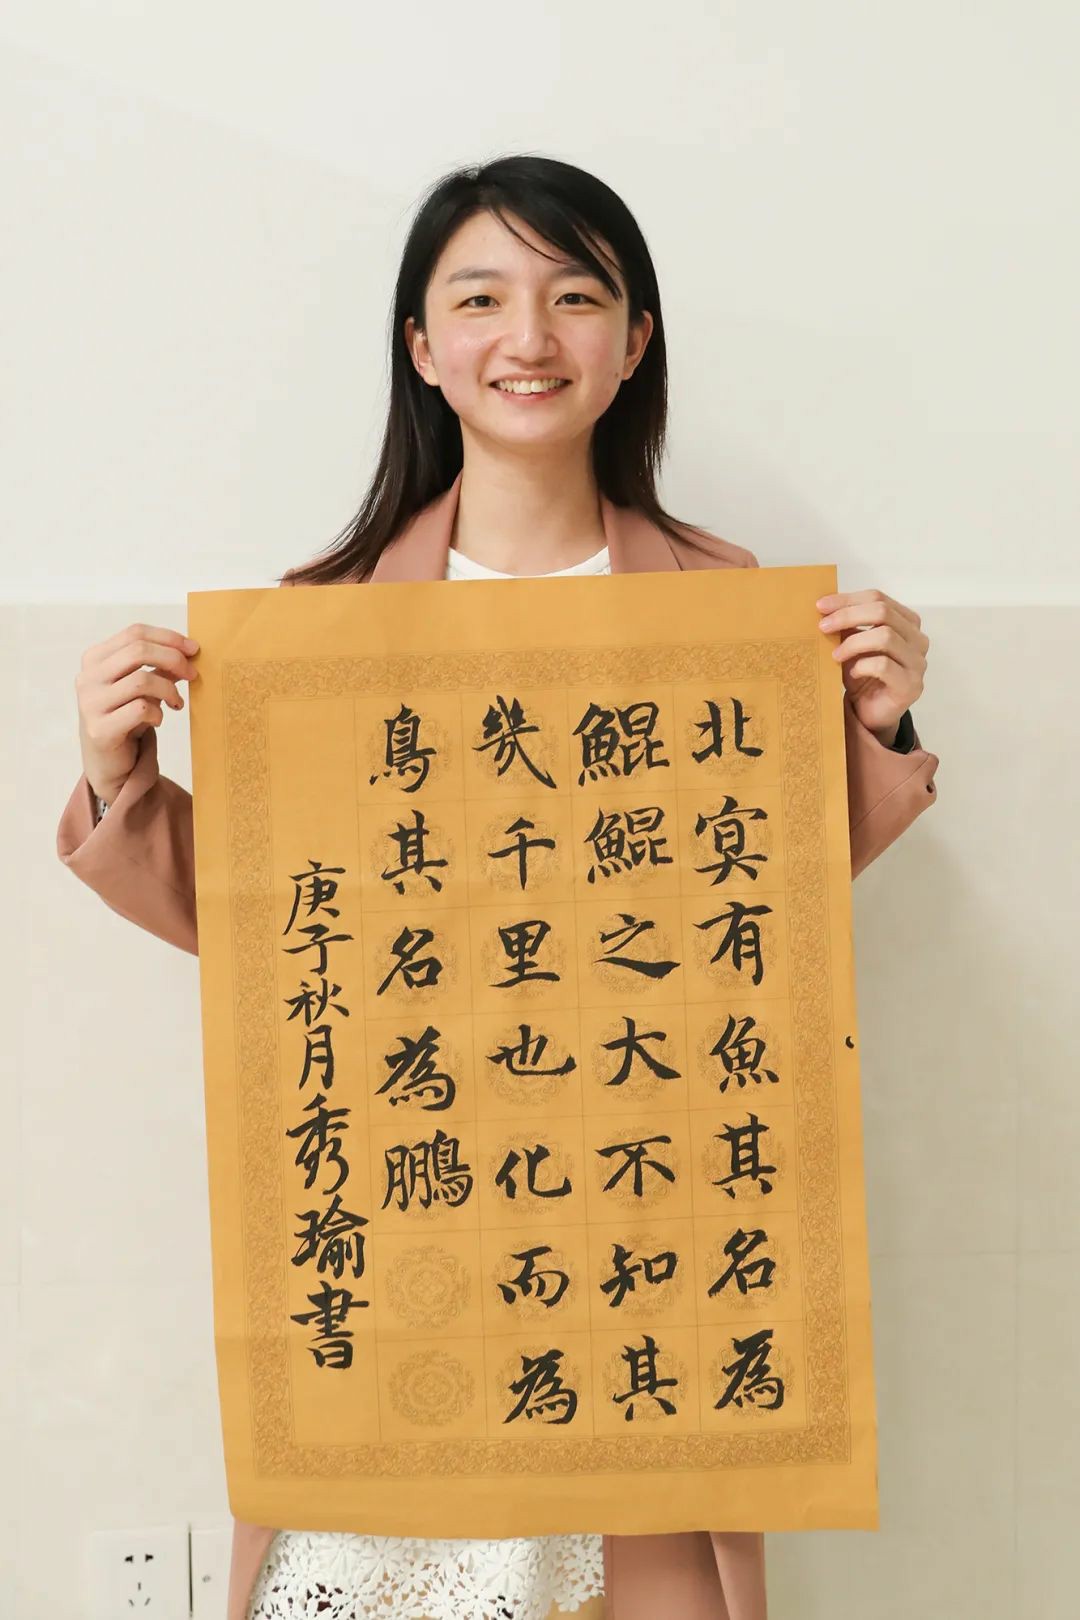 北冥有魚其名為
鯤鯤之大不知其
幾千里也化而為
鳥其名為鵬
庚子秋月秀瑜書